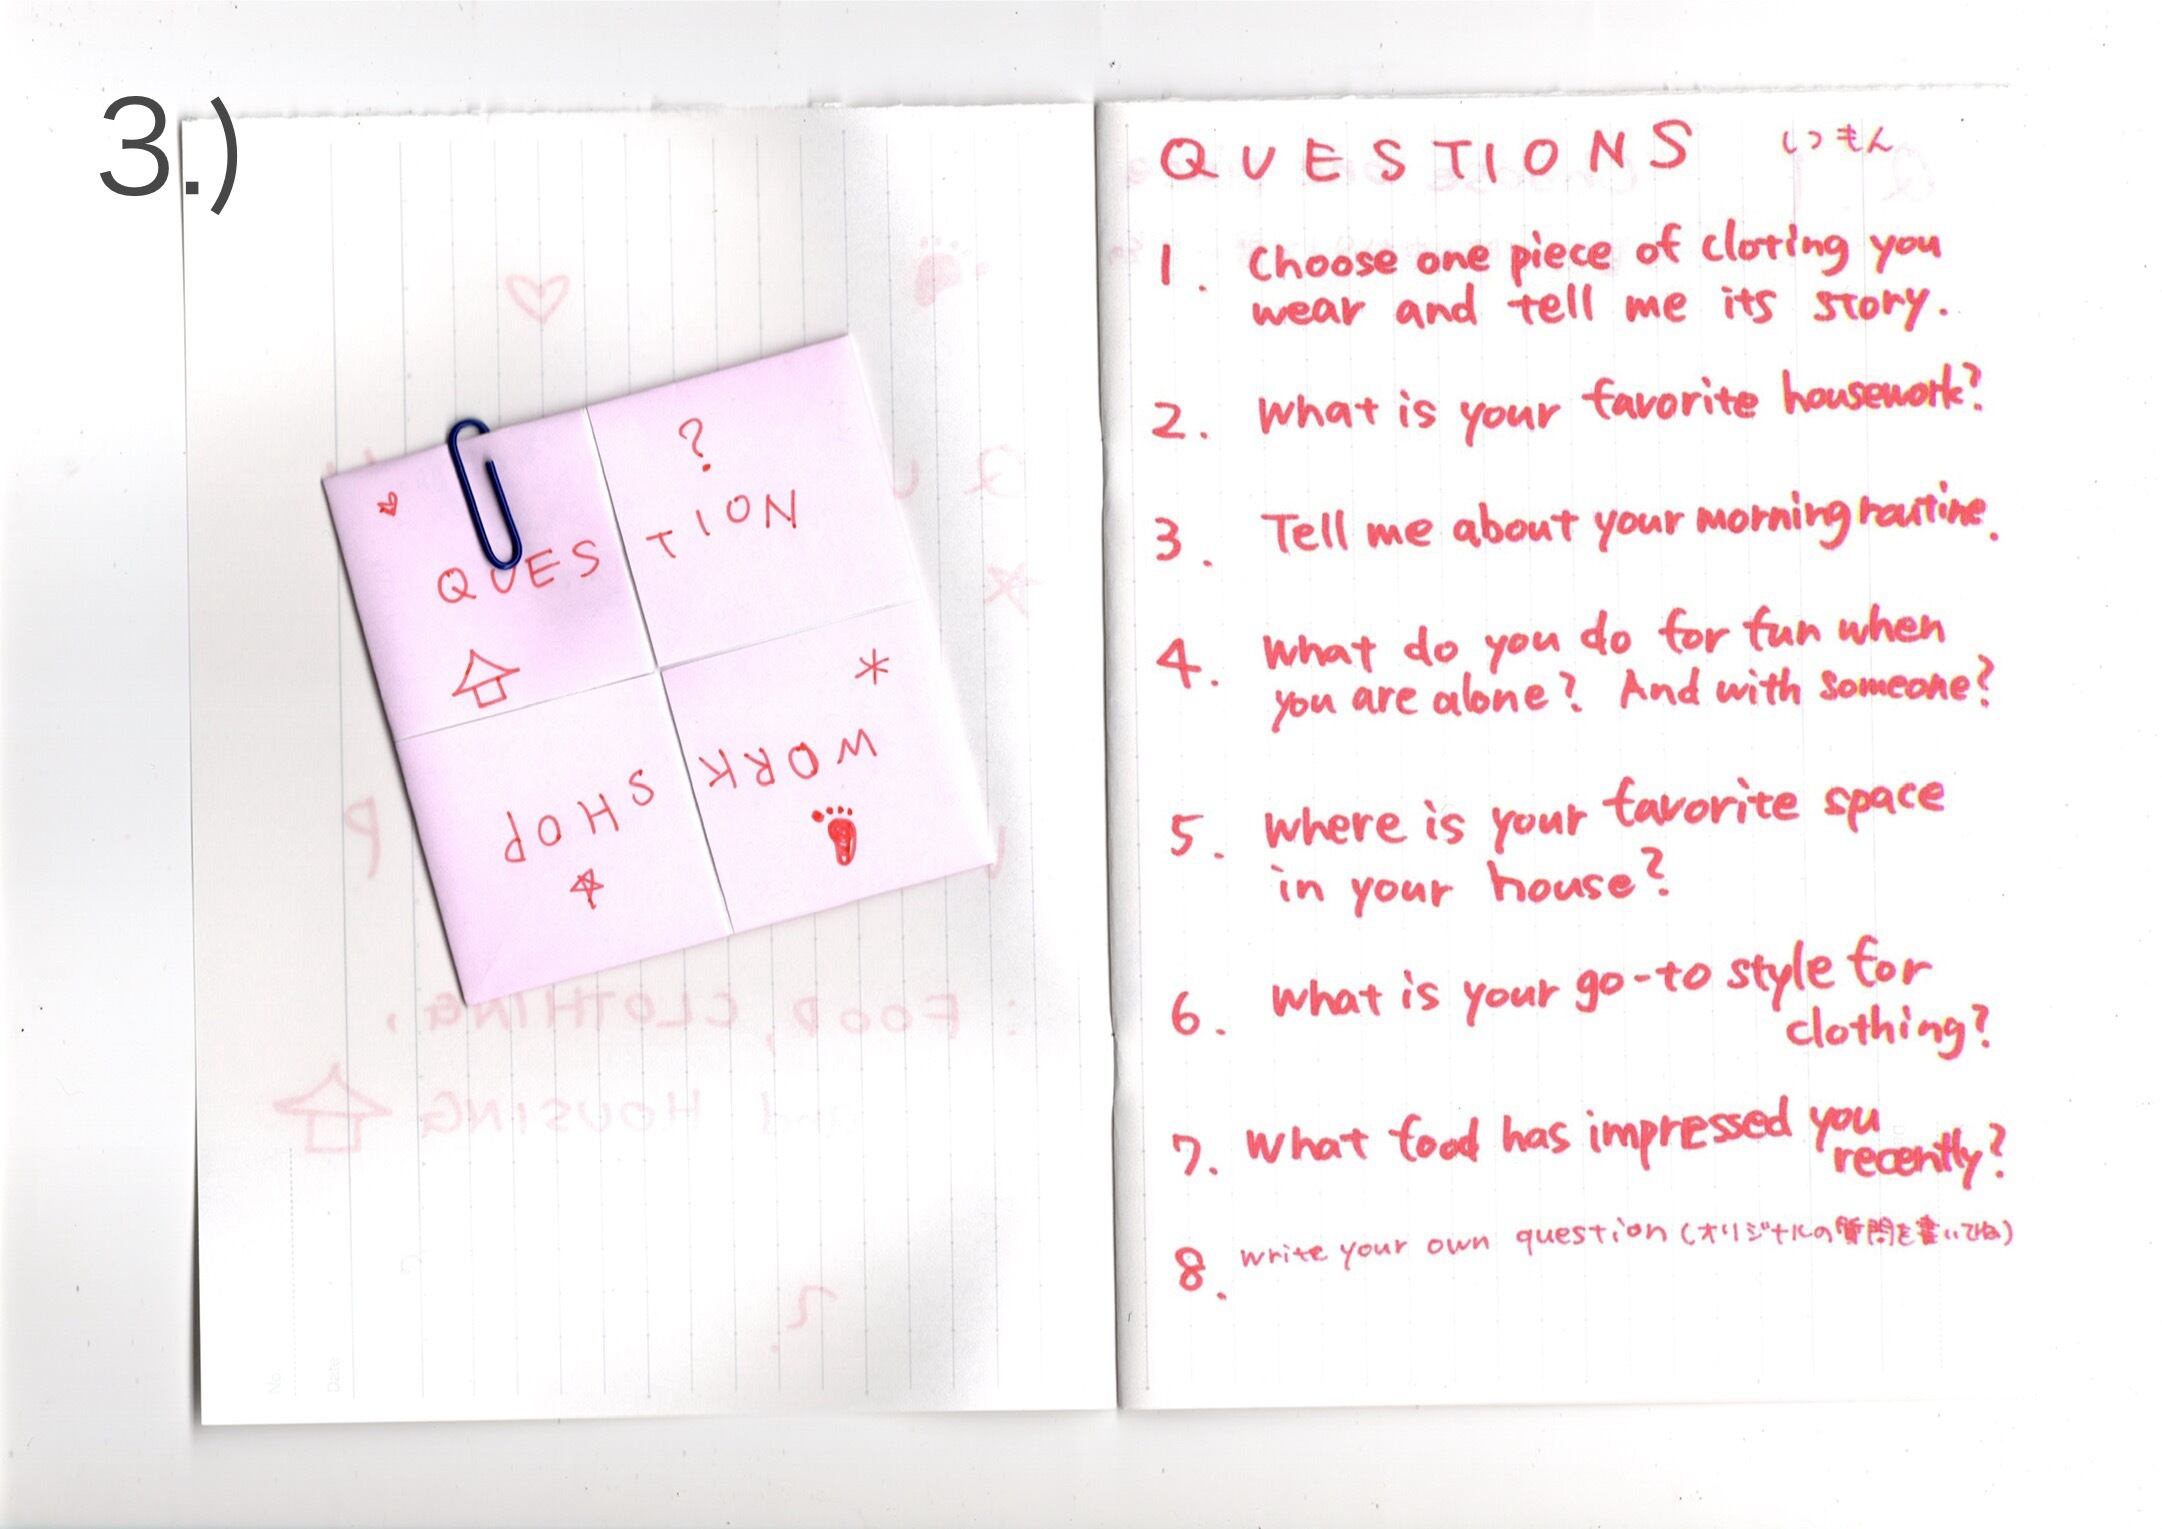 3.)
QUESTION
?
WORK
SHOP
: FOOD, CLOTHING,
and HOUSING
No.
Date
QUESTIONS しつもん
1. Choose one piece of cloting you
wear and tell me its story.
2. What is your favorite housework?
3. Tell me about your morning routine.
4. What do you do for fun when
you are alone? And with someone?
5. Where is your favorite space
in your house?
6. What is your go-to style for
clothing?
7. What food has impressed you
recently?
8. write your own question (オリジナルの質問を書いてね)